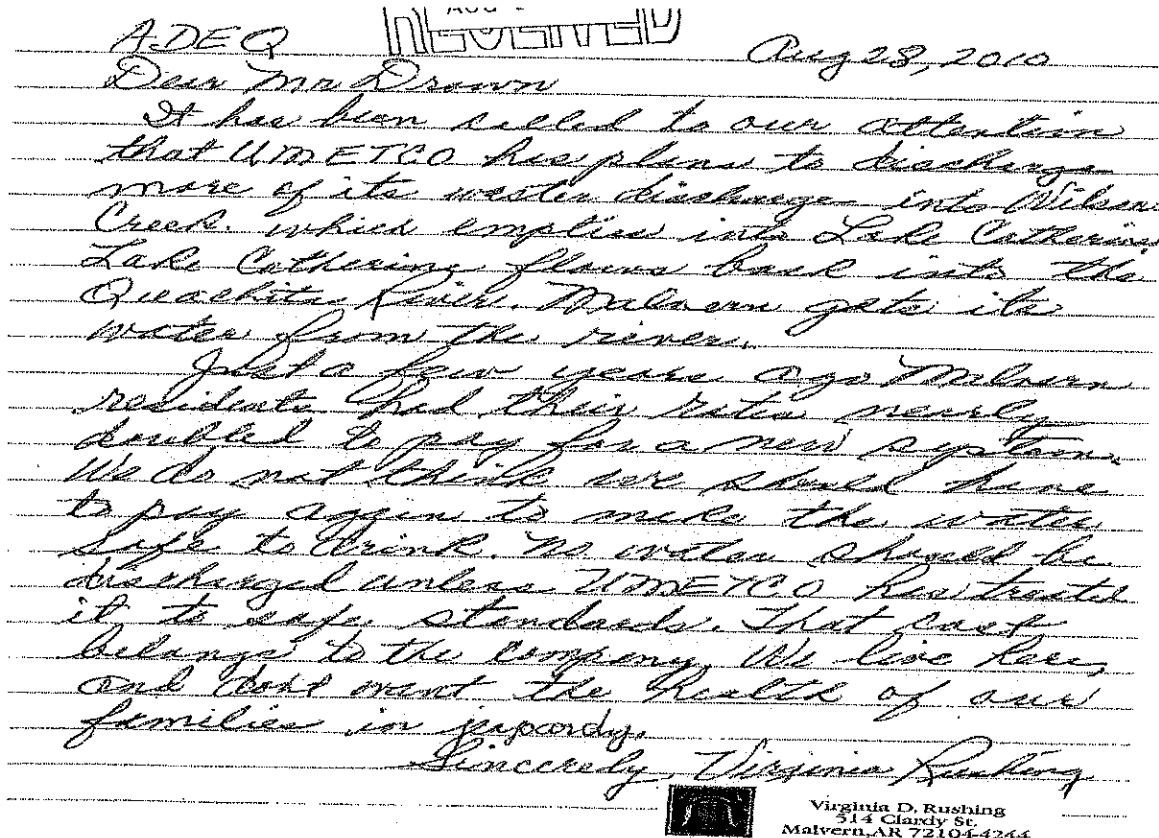 AUG
RECEIVED
ADEQ
Aug 28, 2010
Dear Mr Drown
It has been called to our attention
that UMETCO has plans to discharge
more of its waster discharge into Wilson
Creek. which empties into Lake Catherine
Lake Catherine flows back into the
Ouachita River. Malvern gets its
water from the river.
Just a few years ago Malvern
residents had their rates nearly
doubled to pay for a new system.
We do not think we should have
to pay again to make the water
safe to drink. No water should be
discharged unless UMETCO has treated
it to safe standards. That cost
belongs to the company. We live here,
and dont want the health of our
families in jepordy.
Sincerely, Virginia Rushing
Virginia D. Rushing
514 Clardy St.
Malvern, AR 72104-4244